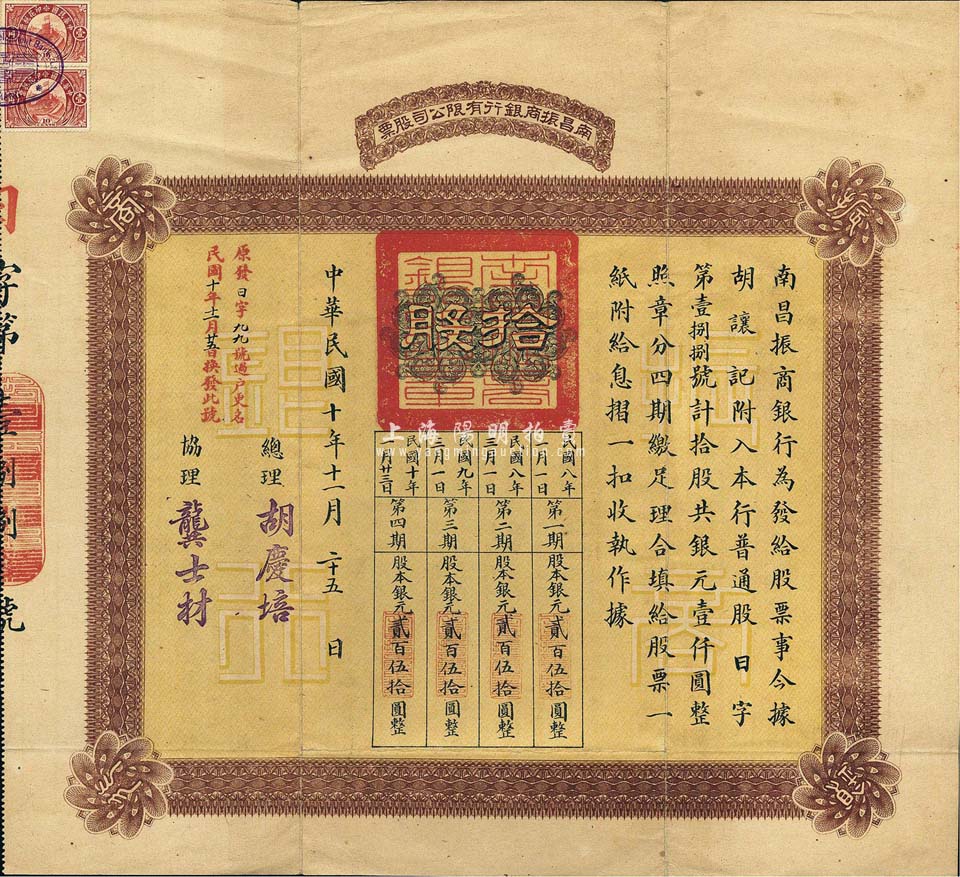 南昌振商銀行有限公司股票
振
商
銀
行
南昌振商銀行為發給股票事今據
胡讓記附入本行普通股日字
第壹捌捌號計拾股共銀元壹仟圓整
照章分四期繳足理合填給股票一
紙附給息摺一扣收執作據
拾股
民國八年一月一日第一期股本銀元貳百伍拾圓整
民國八年三月一日第二期股本銀元貳百伍拾圓整
民國九年三月一日第三期股本銀元貳百伍拾圓整
民國十年 月廿三日第四期股本銀元貳百伍拾圓整
上海陽明拍賣
www.yangmingauction.com
中華民國十年十一月二十五日
總理胡慶培
協理龔士材
原發日字九九號過户更名
民國十年十一月廿五日換發此號
字第壹捌捌號